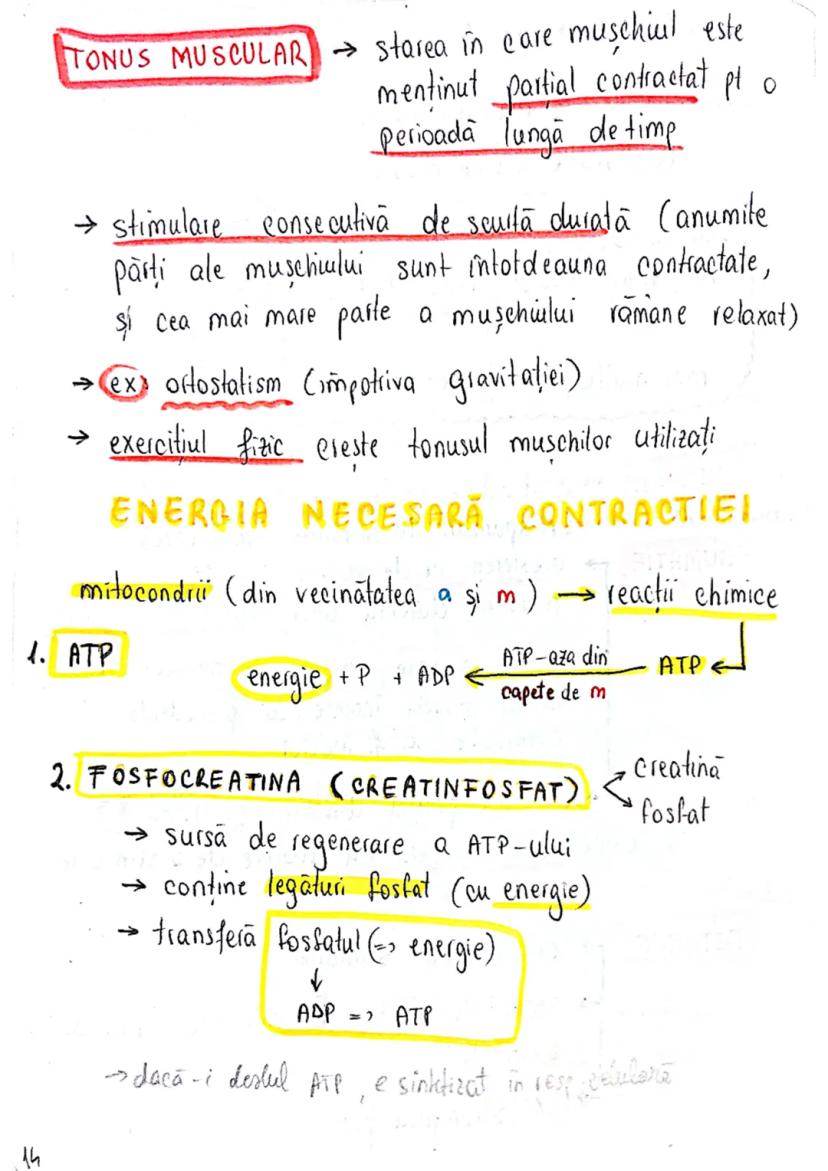 TONUS MUSCULAR → starea în care mușchiul este
menținut parțial contractat pt o
perioadă lungă de timp
→ stimulare consecutivă de scurtă durată (anumite
părți ale mușchiului sunt întotdeauna contractate,
și cea mai mare parte a mușchiului rămâne relaxat)
→ ex: ortostatism (împotriva gravitației)
→ exercițiul fizic crește tonusul mușchilor utilizați
ENERGIA NECESARĂ CONTRACTIEI
mitocondrii (din vecinătatea a și m) → reacții chimice
1. ATP
energie + P + ADP ← ATP-aza din capete de m ATP ←
2. FOSFOCREATINA (CREATINFOSFAT) creatină
fosfat
→ sursă de regenerare a ATP-ului
→ conține legături fosfat (cu energie)
→ transferă fosfatul (=> energie)
↓
ADP => ATP
→ dacă-i destul ATP, e sintetizat în resp celulară
14